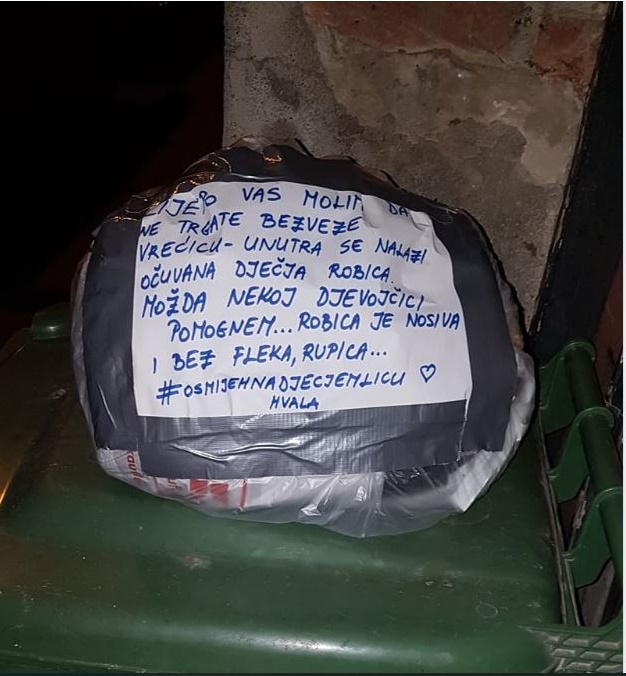 LIJEPO VAS MOLIM DA
NE TRGATE BEZVEZE
VREĆICU- UNUTRA SE NALAZI
OČUVANA DJEČJA ROBICA..
MOŽDA NEKOJ DJEVOJČICI
POMOGNEM... ROBICA JE NOSIVA
I BEZ FLEKA, RUPICA...
#OSMIJEHNADJECJEMLICU ♡
HVALA